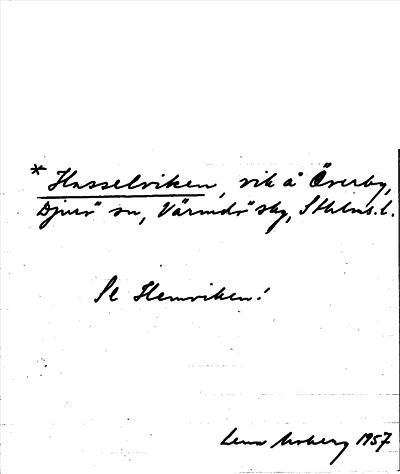 * Hasselviken, vik å Överby,
Djurö sn, Värmdö skg, Sthlms. l.
Se Hemviken!
Lena Moberg 1957